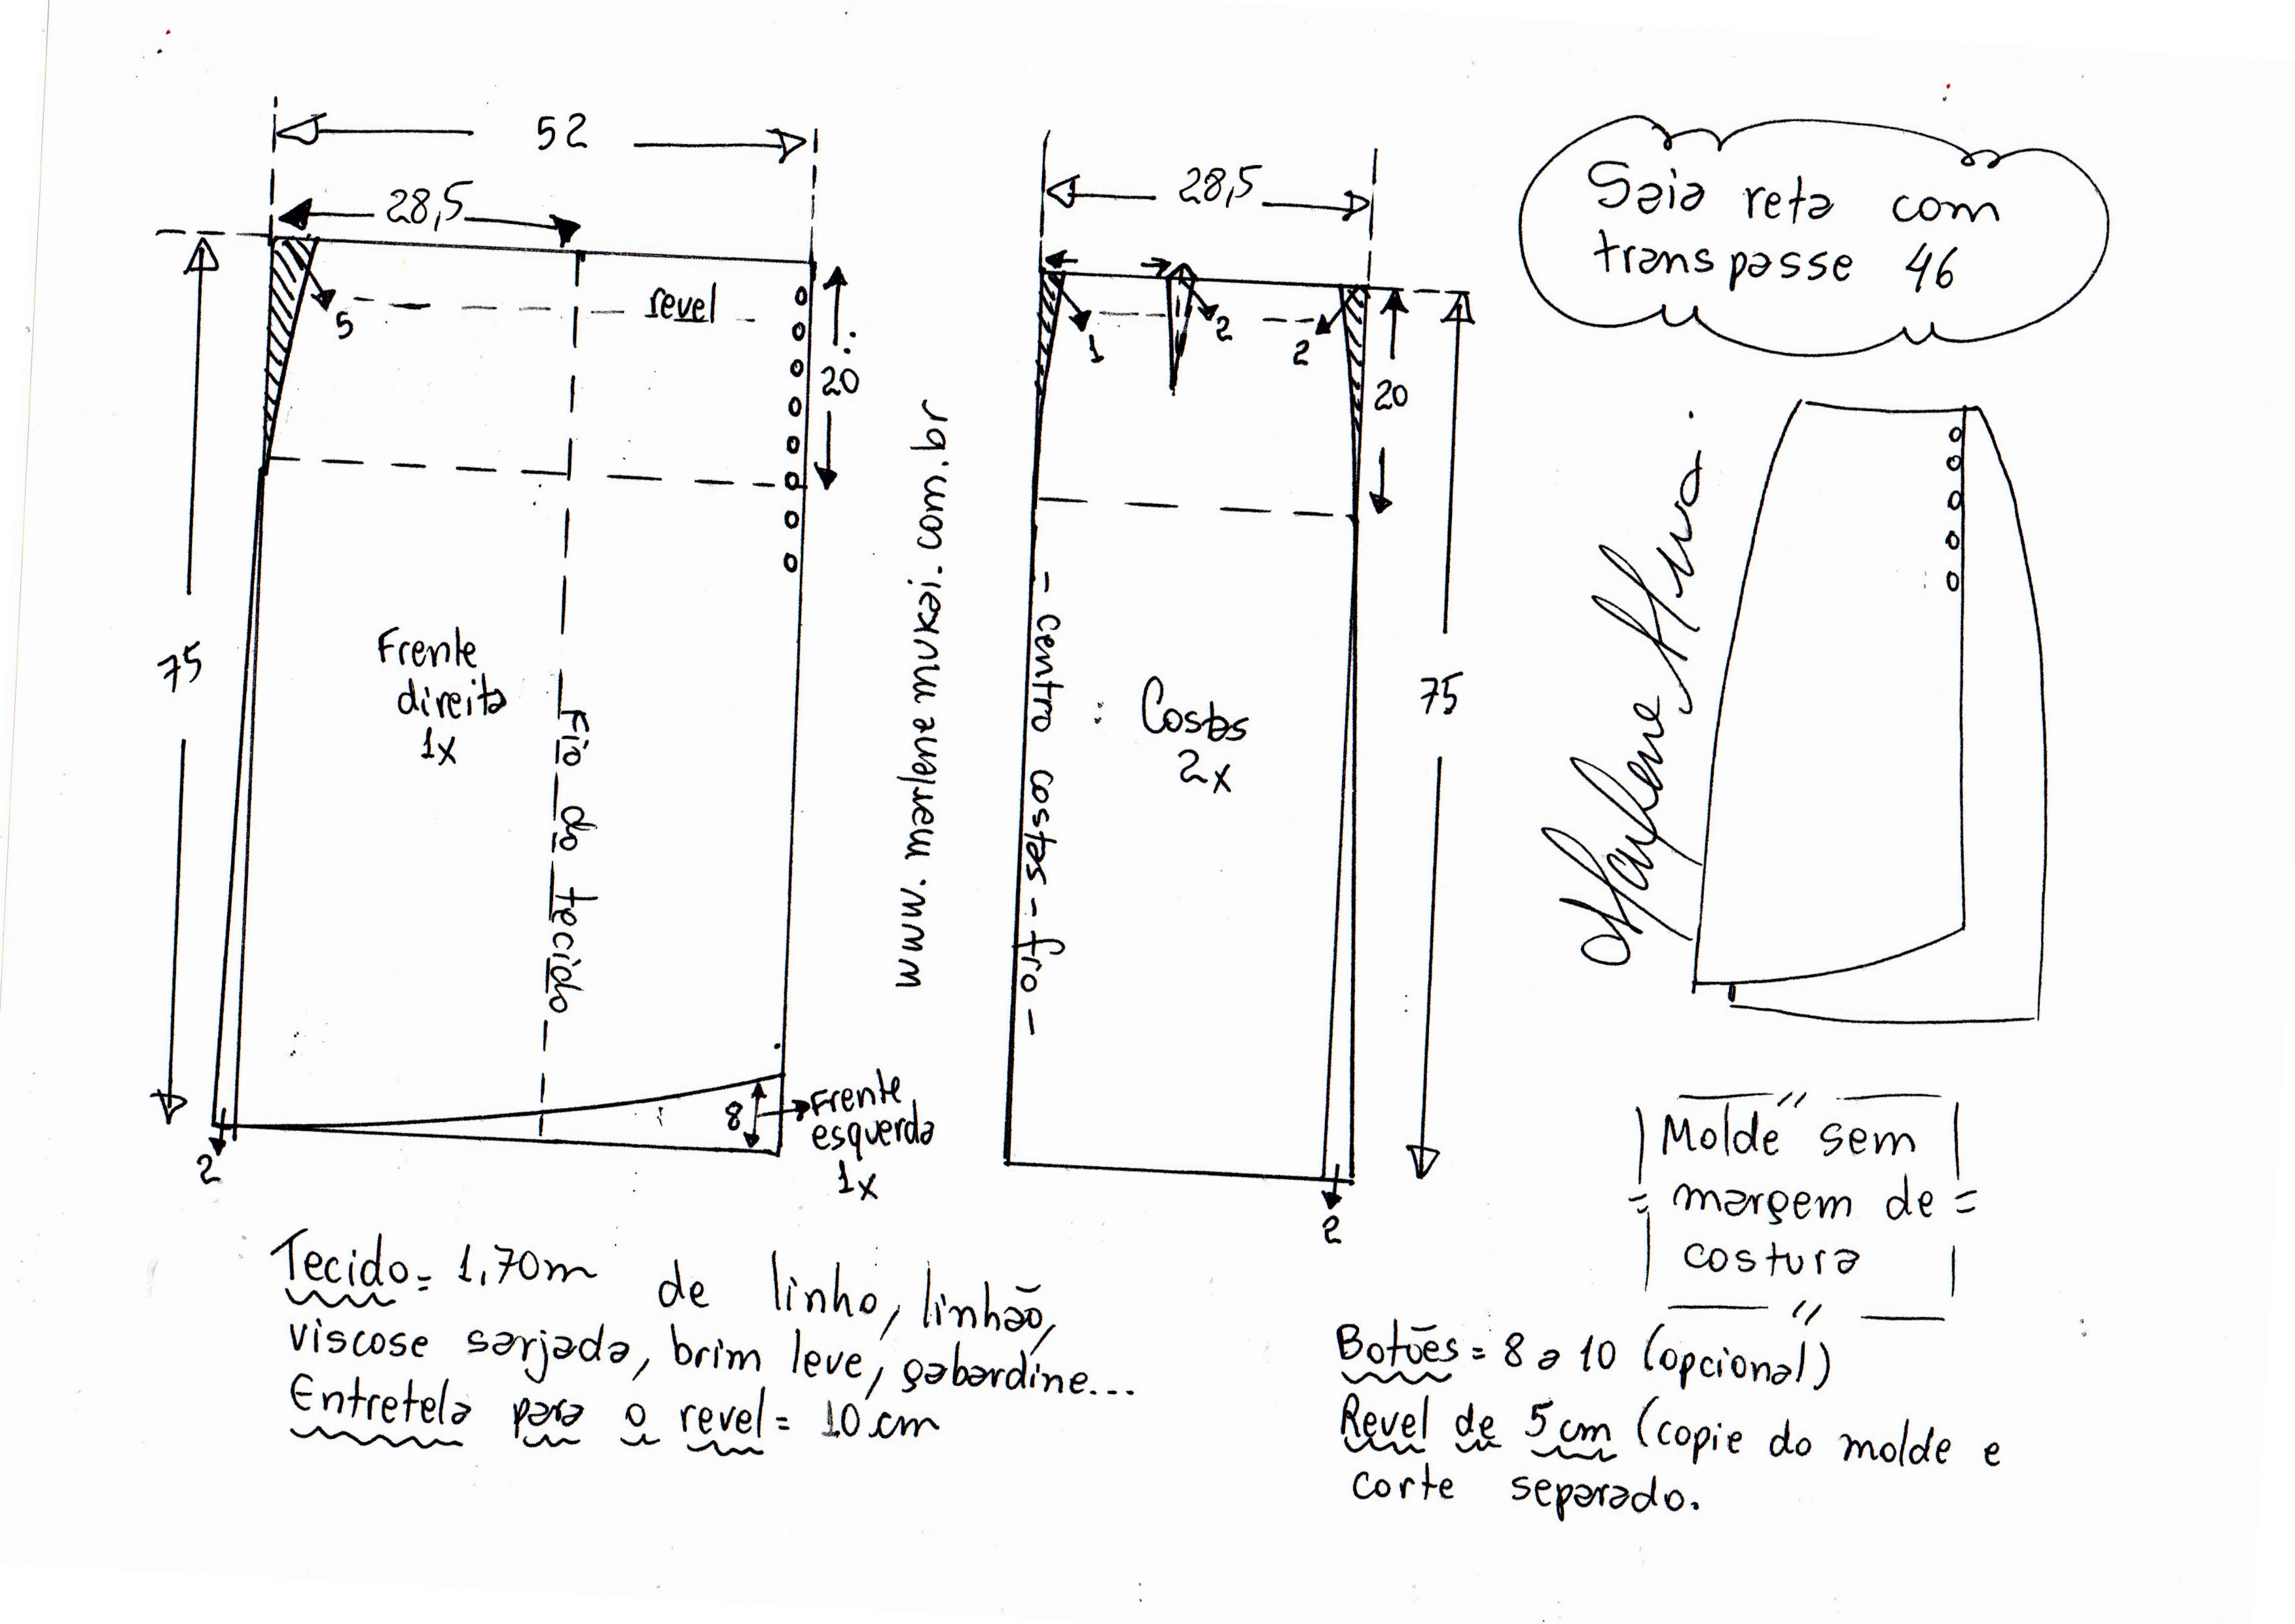 52
28,5
5
revel
20
75
Frente
direita
1x
Fio do tecido
8
Frente
esquerda
1x
2
www.marlene mukai.com.br
28,5
1
2
2
20
75
- Centro costas - fio -
Costas
2x
2
Saia reta com
transpasse 46
Marlene Mukai.
Molde sem
margem de
costura
Tecido = 1,70m de linho, linhão,
viscose sarjada, brim leve, gabardine...
Entretela para o revel = 10 cm
Botões = 8 a 10 (opcional)
Revel de 5 cm (copie do molde e
corte separado.